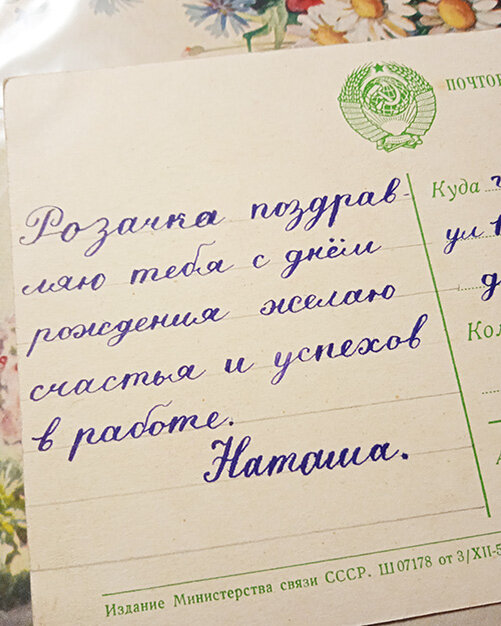 ПОЧТО
Розачка поздрав-
ляю тебя с днём
рождения желаю
счастья и успехов
в работе.
Наташа.
Куда г
ул
д
Ко
Издание Министерства связи СССР. Ш 07178 от 3/XII-5